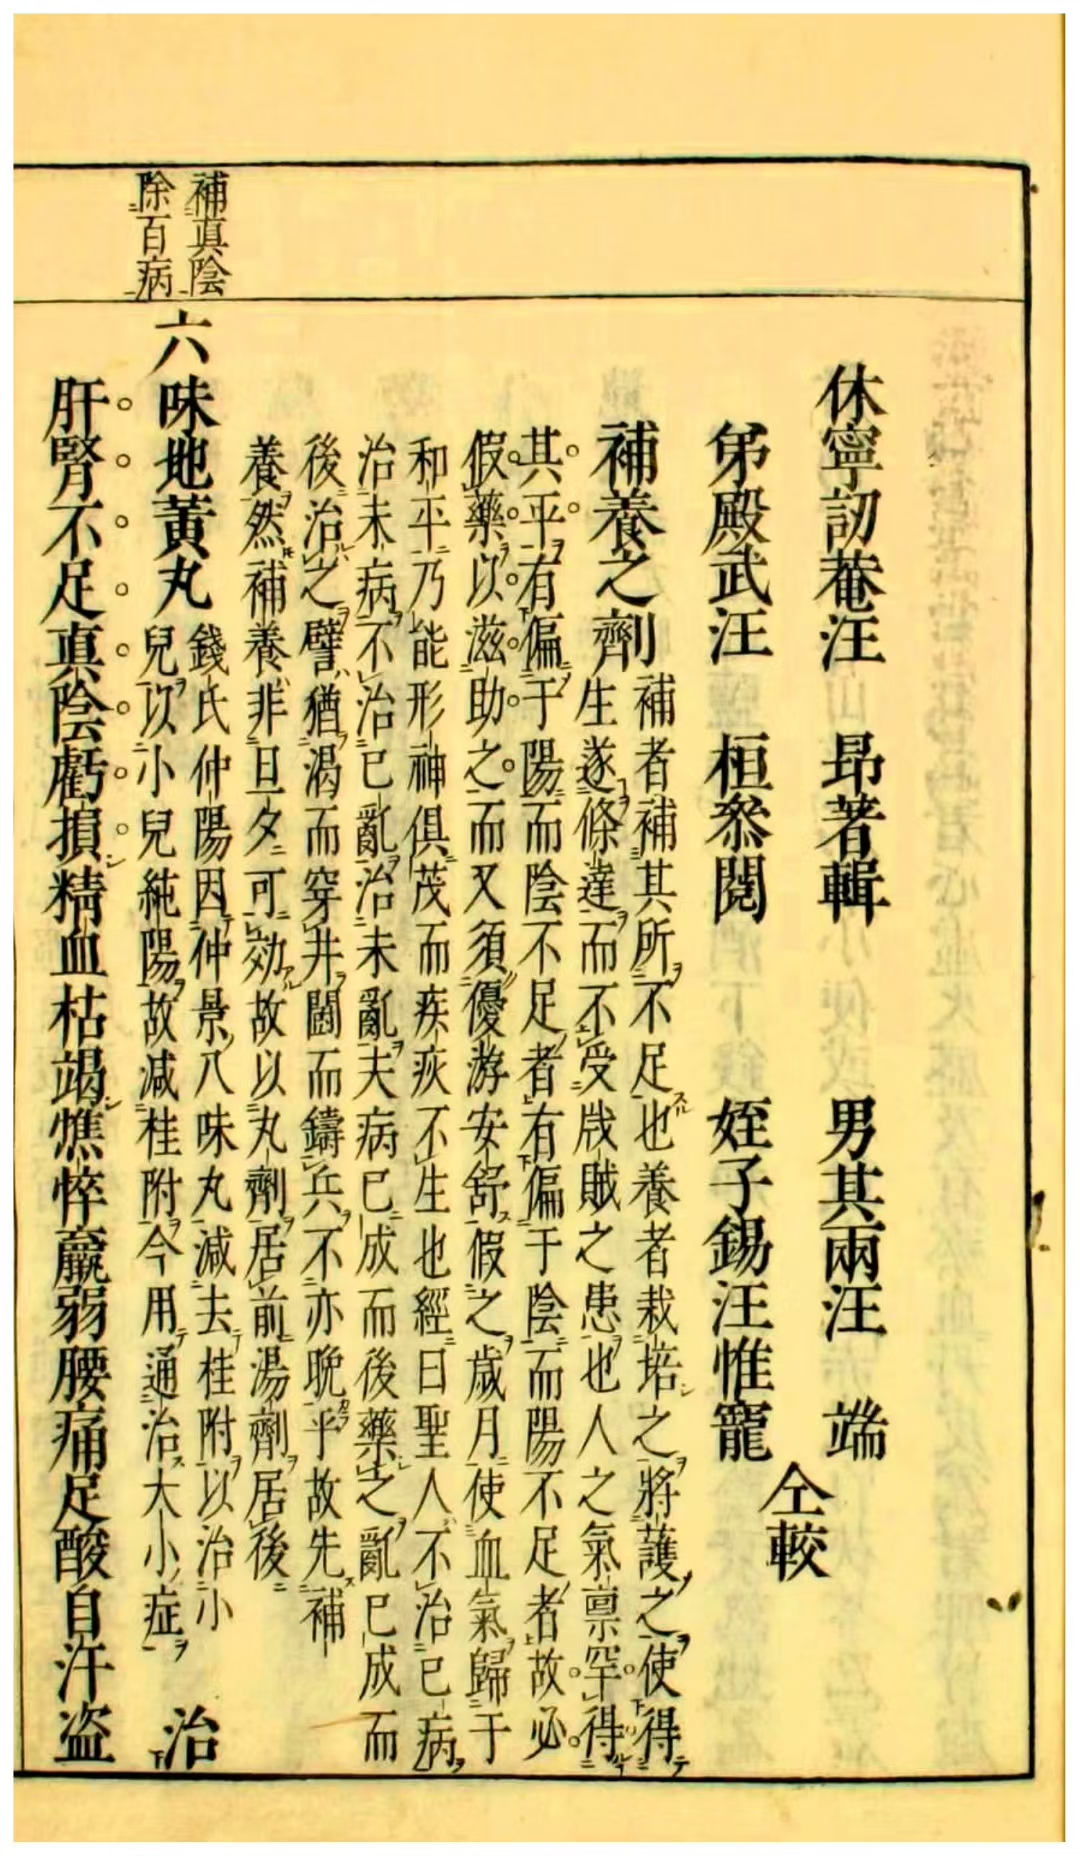 休寧訒菴汪　昻著輯　男其兩汪　端
弟殿武汪　桓叅閱　姪子錫汪惟寵
仝較
補養之劑
補者補其所不足也養者栽培之將護之使得
生遂條達而不受戕賊之患也人之氣禀罕得
其平有偏于陽而陰不足者有偏于陰而陽不足者故必
假藥以滋助之而又須優游安舒假之歲月使血氣歸于
和平乃能形神俱茂而疾疢不生也經曰聖人不治已病
治未病不治已亂治未亂夫病已成而後藥之亂已成而
後治之譬猶渴而穿井鬪而鑄兵不亦晚乎故先補
養然補養非旦夕可効故以丸劑居前湯劑居後
補眞陰
除百病
六味地黃丸
錢氏仲陽因仲景八味丸減去桂附以治小
兒以小兒純陽故減桂附今用通治大小症
治
肝腎不足眞陰虧損精血枯竭憔悴羸弱腰痛足酸自汗盗